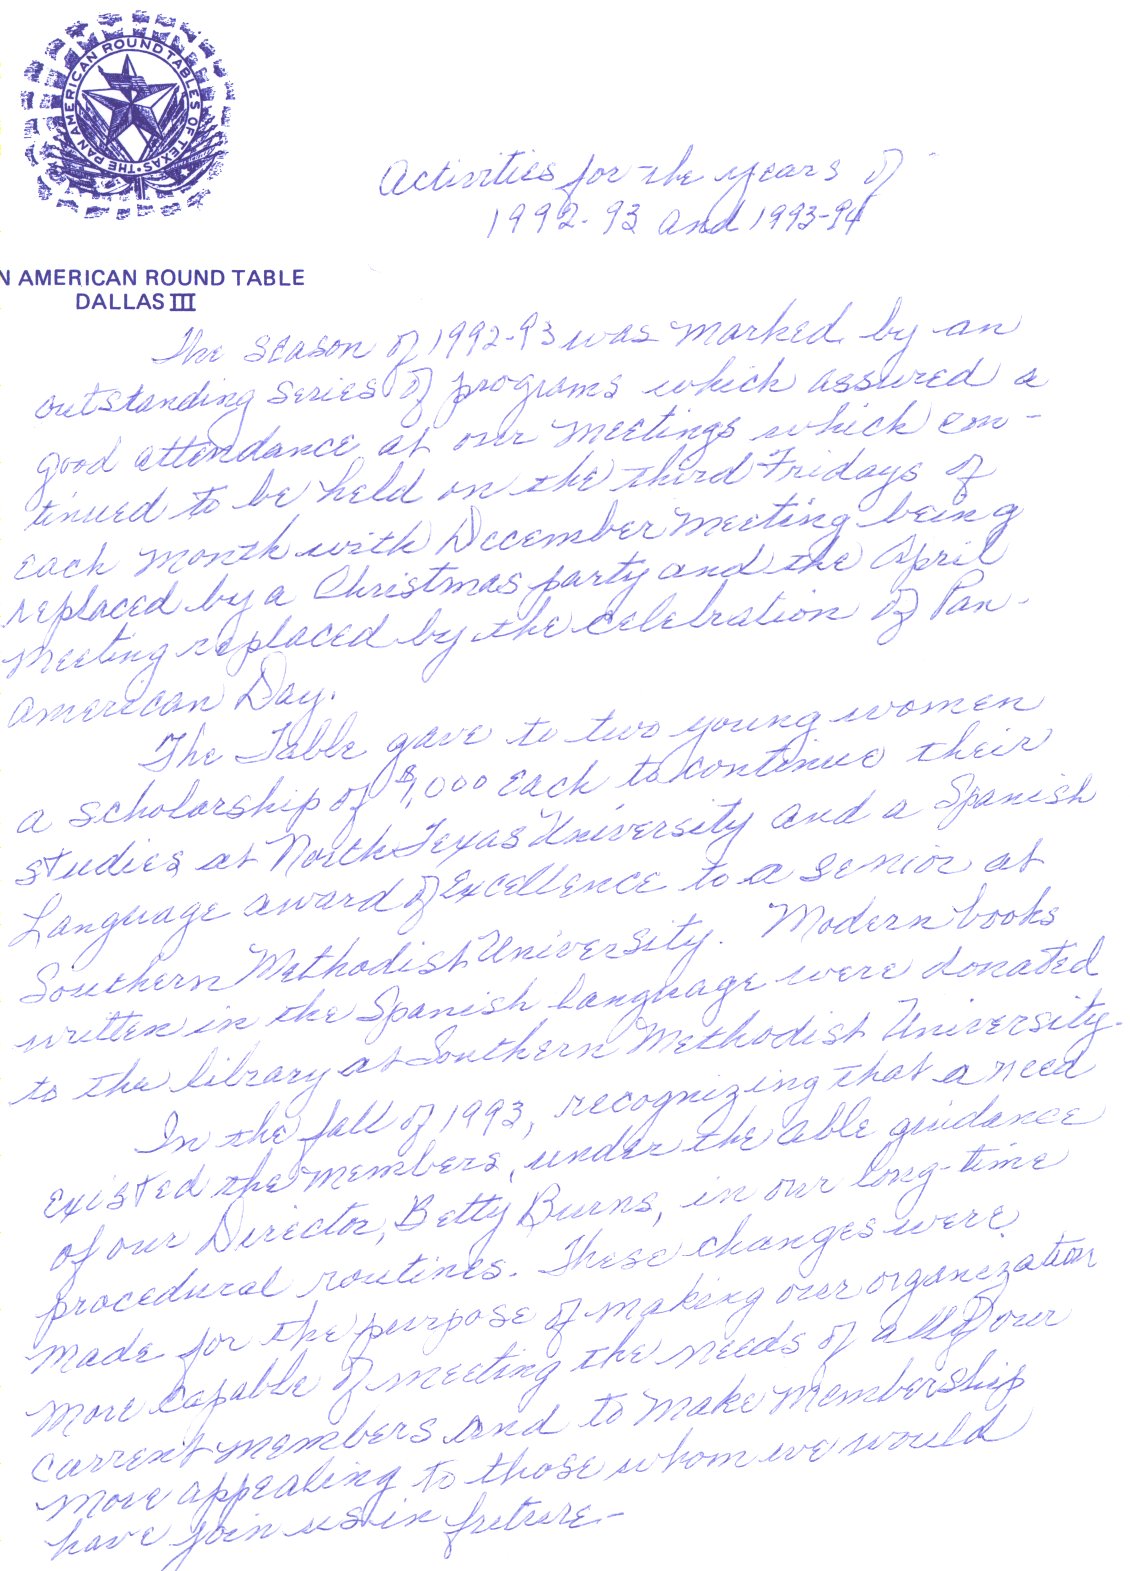 THE PAN AMERICAN ROUND TABLES OF TEXAS
Activities for the years of
1992-93 and 1993-94
N AMERICAN ROUND TABLE
DALLAS III
The season of 1992-93 was marked by an
outstanding series of programs which assured a
good attendance at our meetings which con-
tinued to be held on the third Fridays of
each month with December meeting being
replaced by a Christmas party and the April
meeting replaced by the celebration of Pan-
American Day.
The Table gave to two young women
a scholarship of $1,000 each to continue their
studies at North Texas University and a Spanish
Language award of Excellence to a senior at
Southern Methodist University. Modern books
written in the Spanish language were donated
to the library at Southern Methodist University.
In the fall of 1993, recognizing that a need
existed the members, under the able guidance
of our Director, Betty Burns, in our long-time
procedural routines. These changes were
made for the purpose of making our organization
more capable of meeting the needs of all of our
current members and to make membership
more appealing to those whom we would
have join us in future-